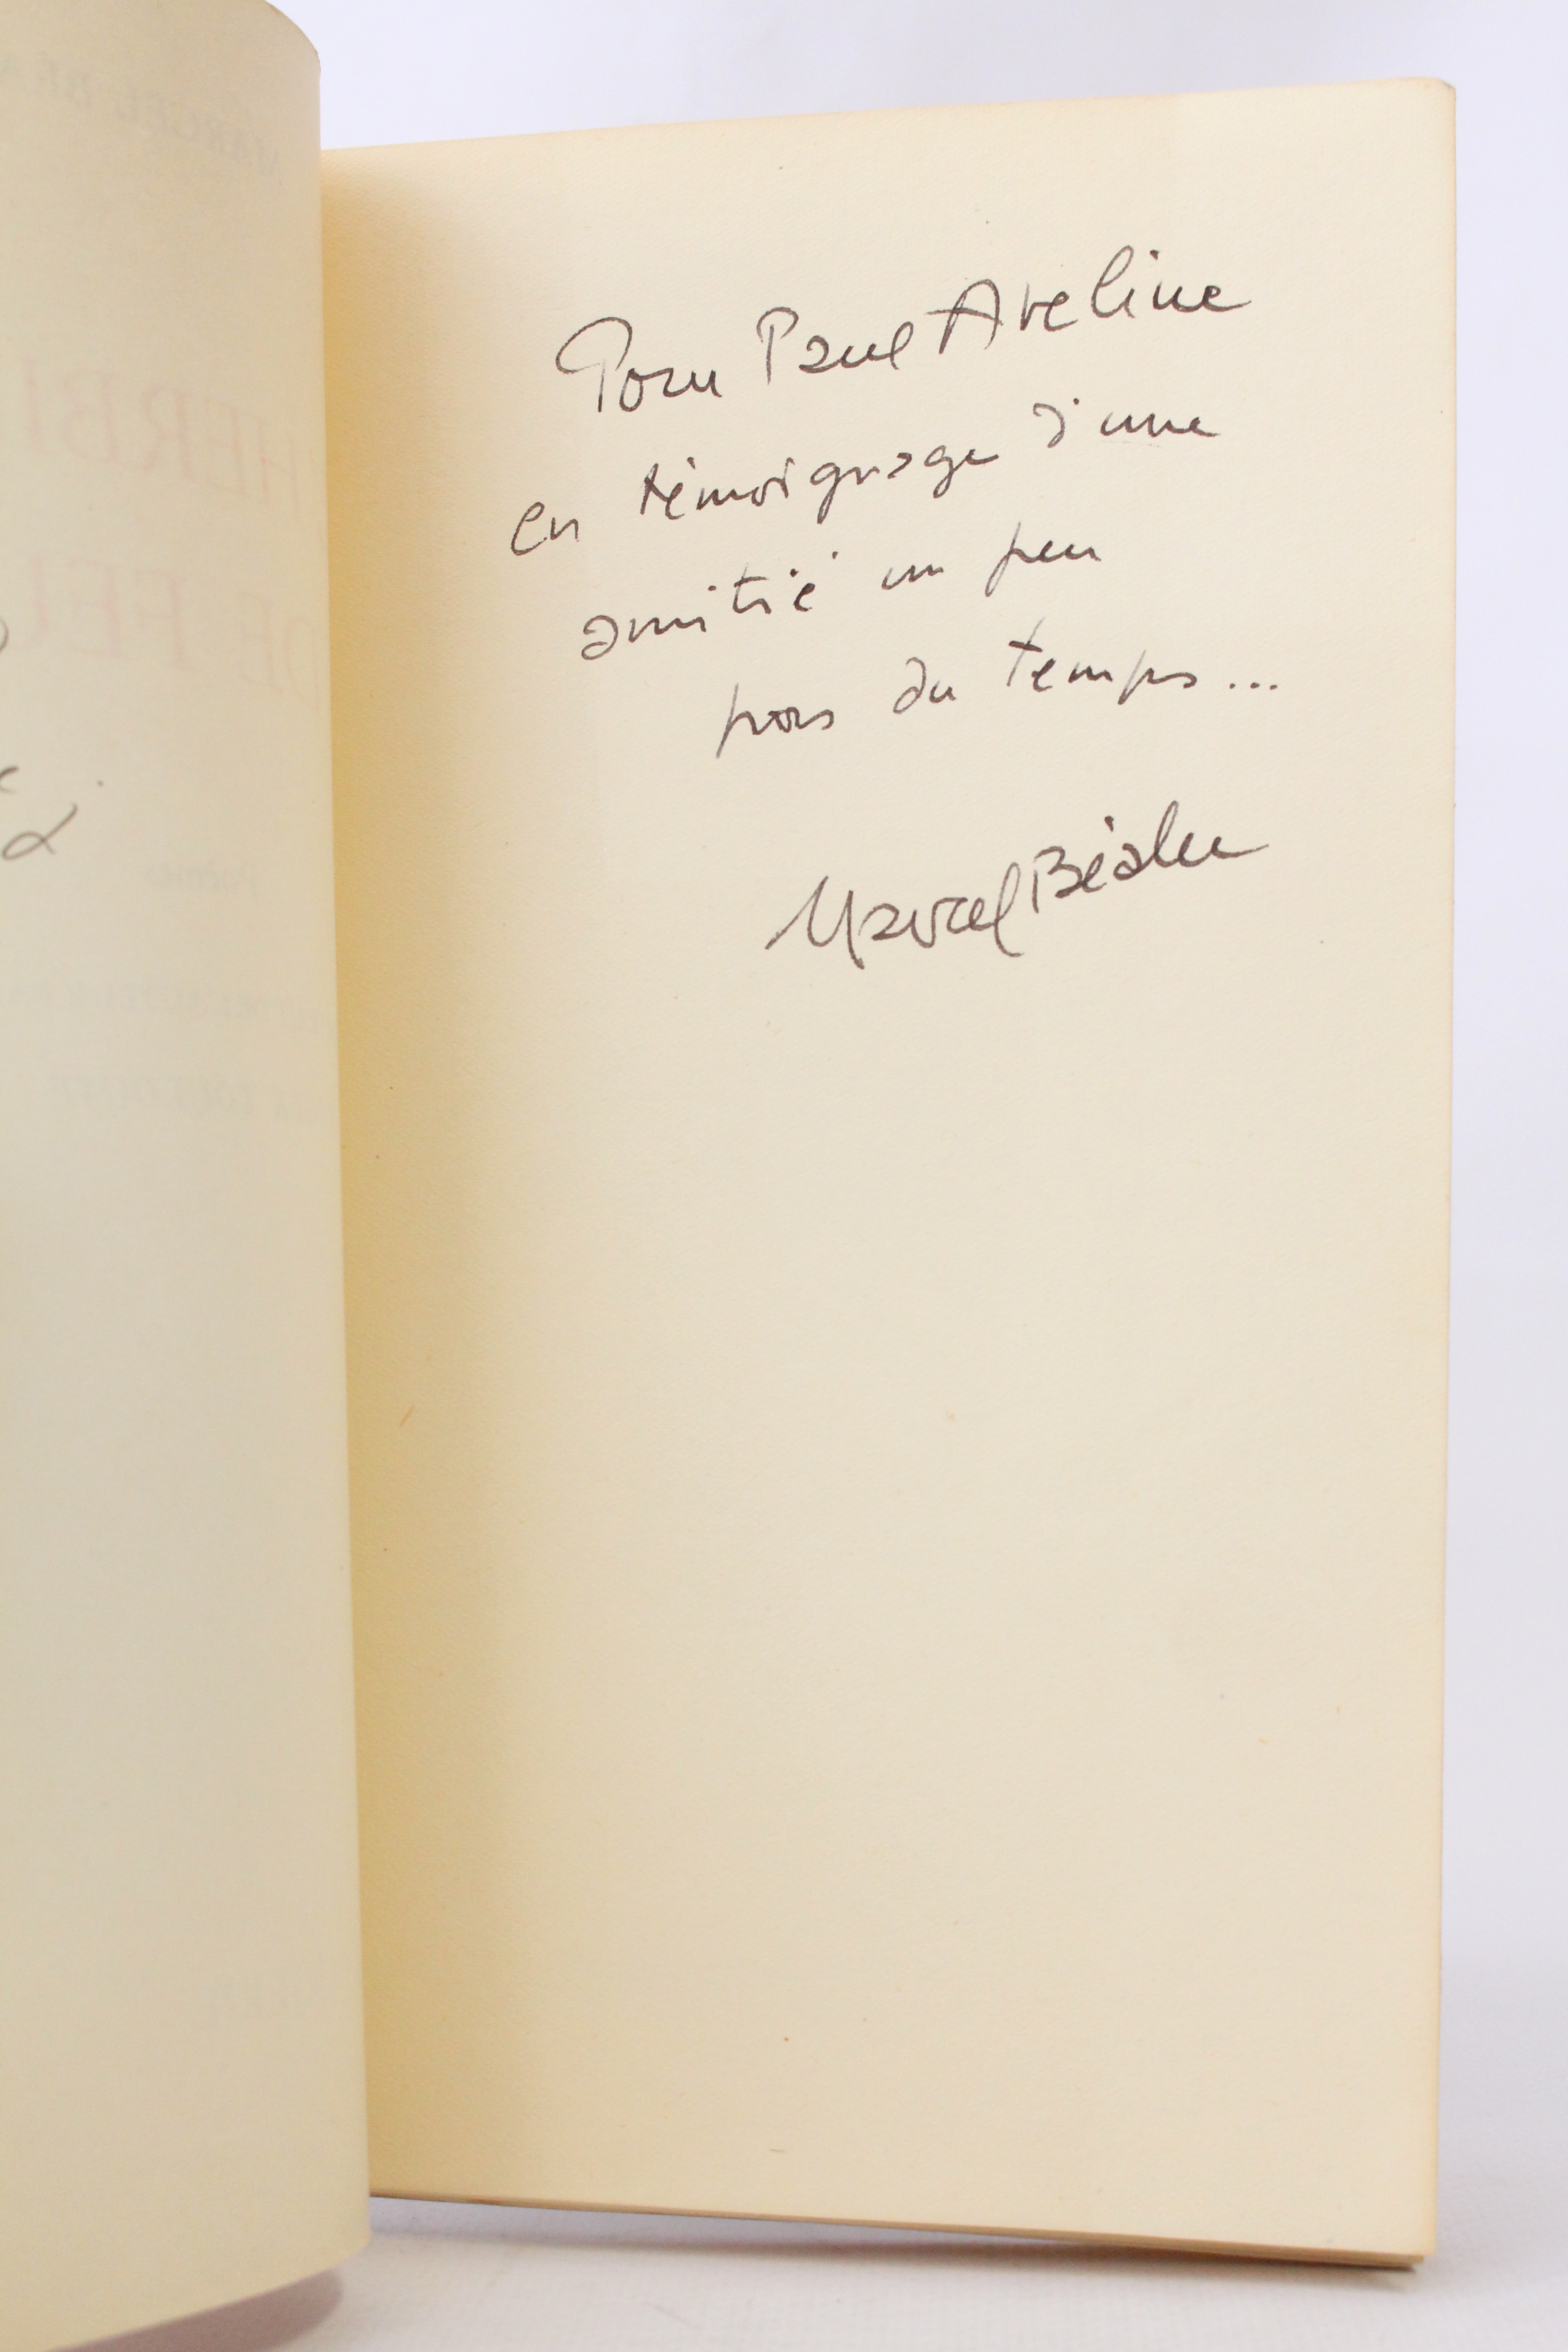 Pour Paul Aveline
en témoignage d'une
amitié un peu
hors du temps...
Marcel Béalu